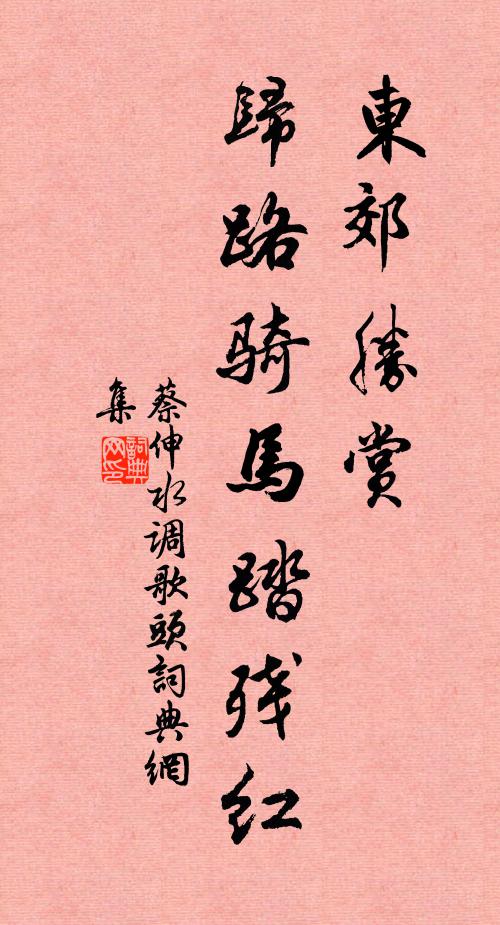 東郊勝賞
歸路騎馬踏残紅
蔡伸水调歌頭詞典網
集
詞典网印